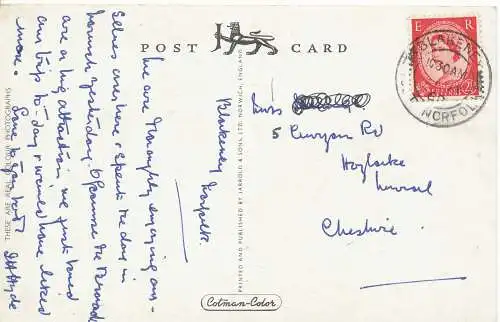 POST CARD
Blakeney
Norfolk.
We are thoroughly enjoying our-
selves over here & spent the day in
Norwich yesterday. Of course the Broads
are a big attraction, we just loved
our trip to-day & would have liked
more.
Love to you both.
Hyde
5 Curzon Rd
Hoylake
Wirral
Cheshire.
E R
BLAKENEY
10 30 AM
NORFOLK
PRINTED AND PUBLISHED BY JARROLD & SONS LTD. NORWICH, ENGLAND
THESE ARE REAL COLOUR PHOTOGRAPHS
Cotman-Color